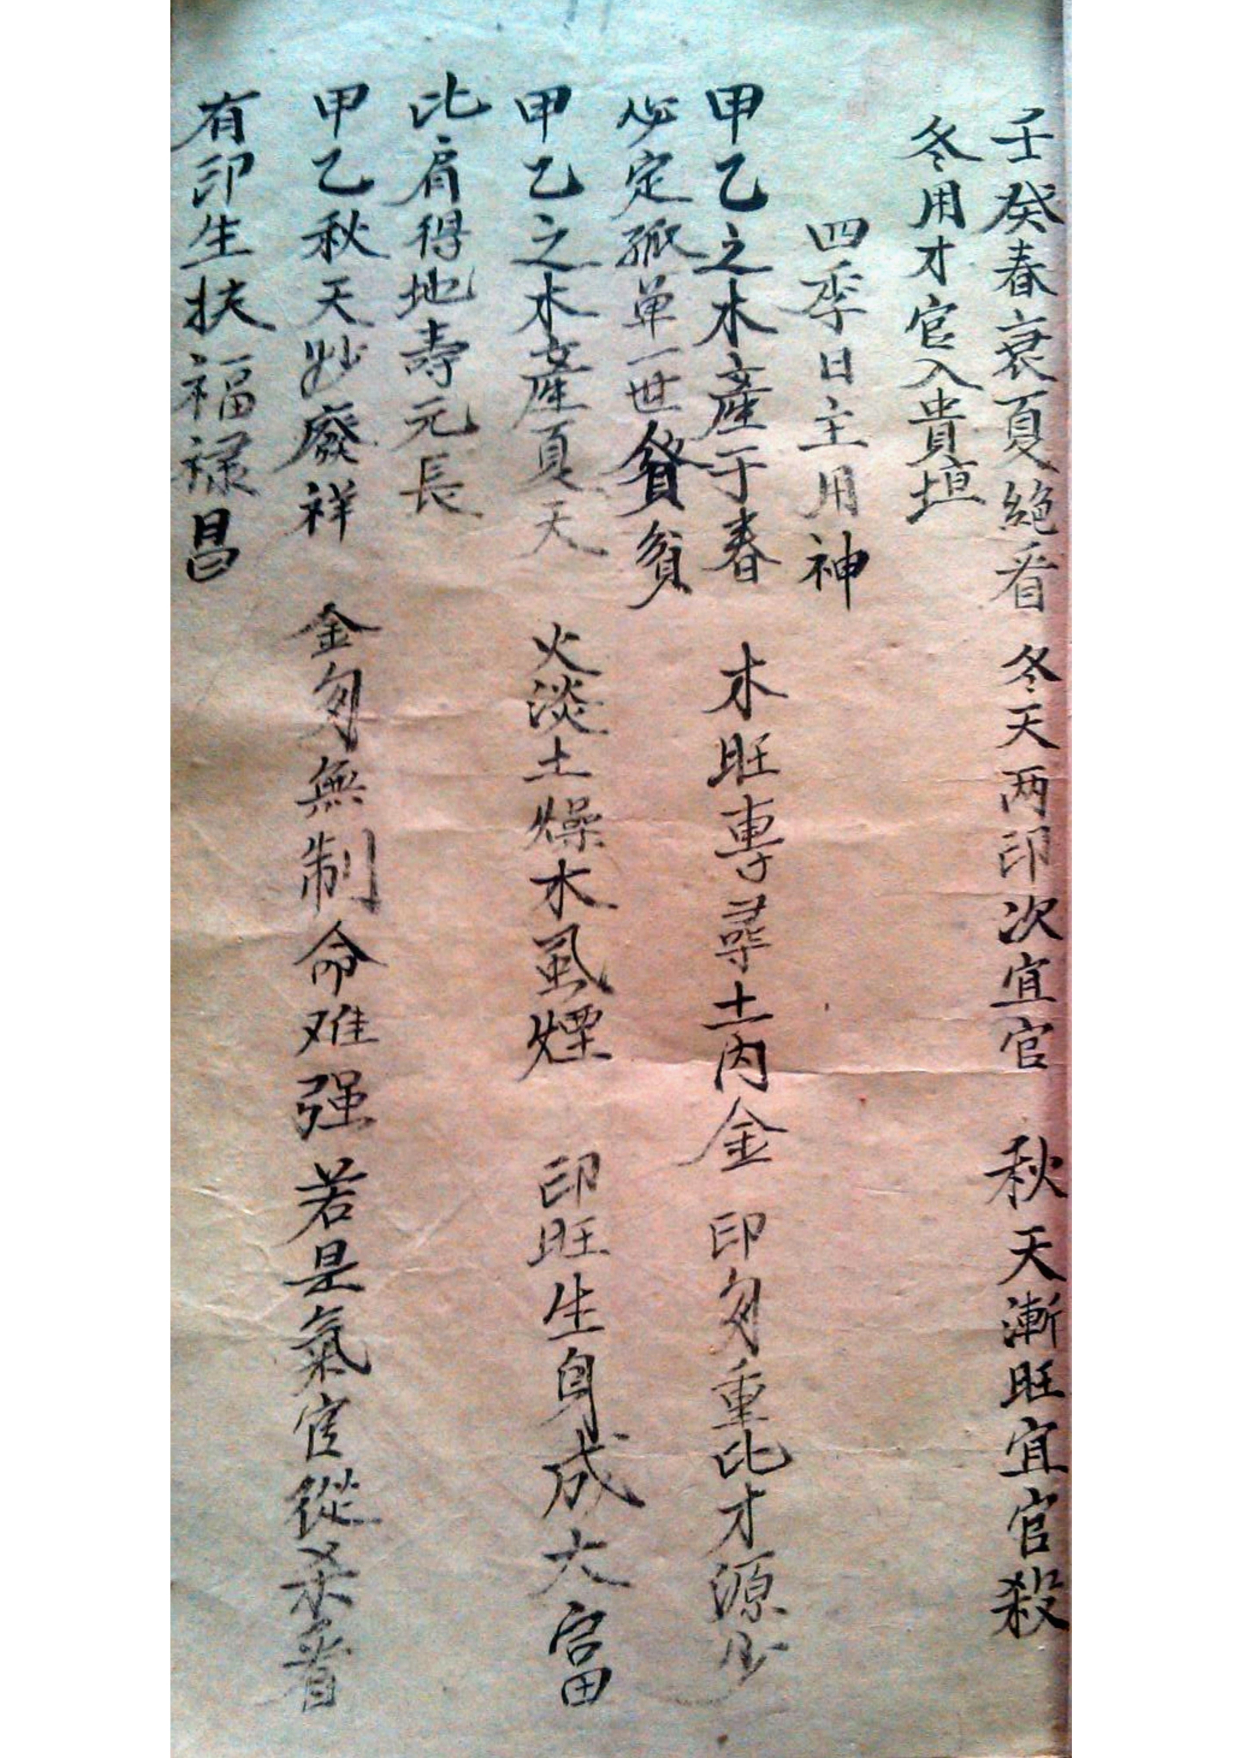 壬癸春衰夏絕看 冬天两印次宜官 秋天漸旺宜官殺
冬用才官入貴垣
四季日主用神
甲乙之木產于春 木旺專尋土内金 印匆重比才源少
必定孤单一世貧貧
甲乙之木產夏天 火淡土燥木虱煙 印旺生身成大富
比肩得地壽元長
甲乙秋天妙廢祥 金匆無制命难强 若是氣官從杀看
有印生扶福禄昌